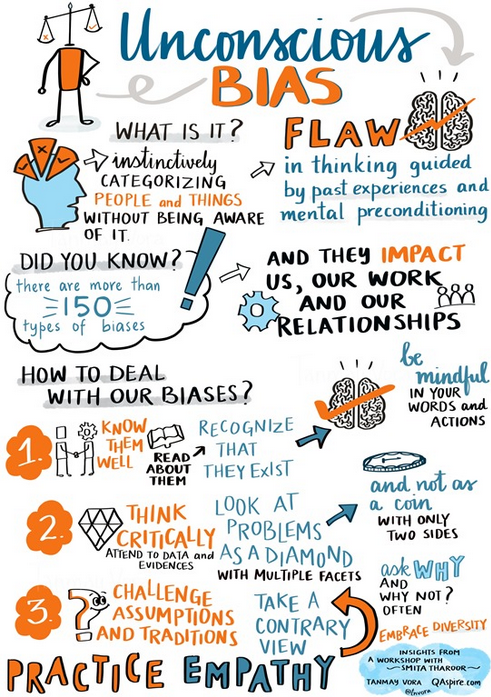 Unconscious
BIAS
WHAT IS IT?
instinctively
CATEGORIZING
PEOPLE and THINGS
WITHOUT BEING AWARE
OF IT.
FLAW
in thinking guided
by past experiences and
mental preconditioning
DID YOU KNOW?
there are more than
150
types of biases
AND THEY IMPACT
US, OUR WORK
AND OUR
RELATIONSHIPS
HOW TO DEAL
WITH OUR BIASES?
1.
KNOW
THEM
WELL
READ
ABOUT
THEM
RECOGNIZE
THAT
THEY EXIST
be
mindful
IN YOUR
WORDS and
ACTIONS
2.
THINK
CRITICALLY
ATTEND TO DATA and
EVIDENCES
LOOK AT
PROBLEMS
AS A DIAMOND
WITH MULTIPLE FACETS
and not as
a coin
WITH ONLY
TWO SIDES
3.
CHALLENGE
ASSUMPTIONS
AND TRADITIONS
TAKE A
CONTRARY
VIEW
ask WHY
AND
WHY NOT?
OFTEN
EMBRACE DIVERSITY
PRACTICE EMPATHY
INSIGHTS FROM
A WORKSHOP WITH
SMITA THAROOR
TANMAY VORA QAspire.com
@tnvora